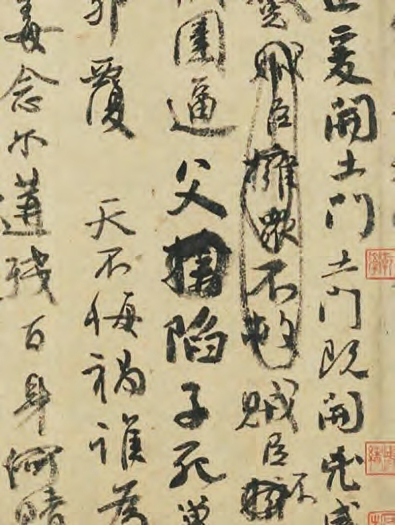 爰開土門土門既開兇威
賊臣擁眾不救賊臣不
圍逼父陷子死巢
卵覆天不悔禍誰為
毒念爾遘殘百身何贖